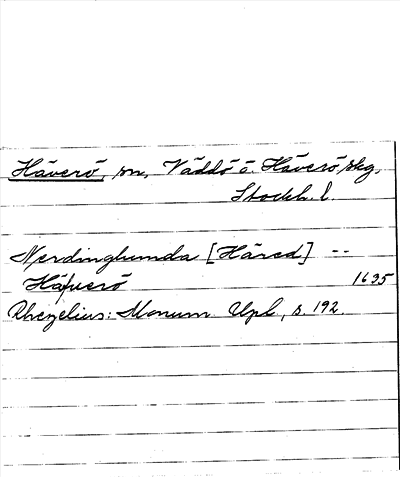 Häverö, sn, Väddö o. Häverö skg,
Stockh. l.
Nerdinghunda [Häred] --
Häfuerö 1635
Rhezelius: Monum. Upl, s. 192.